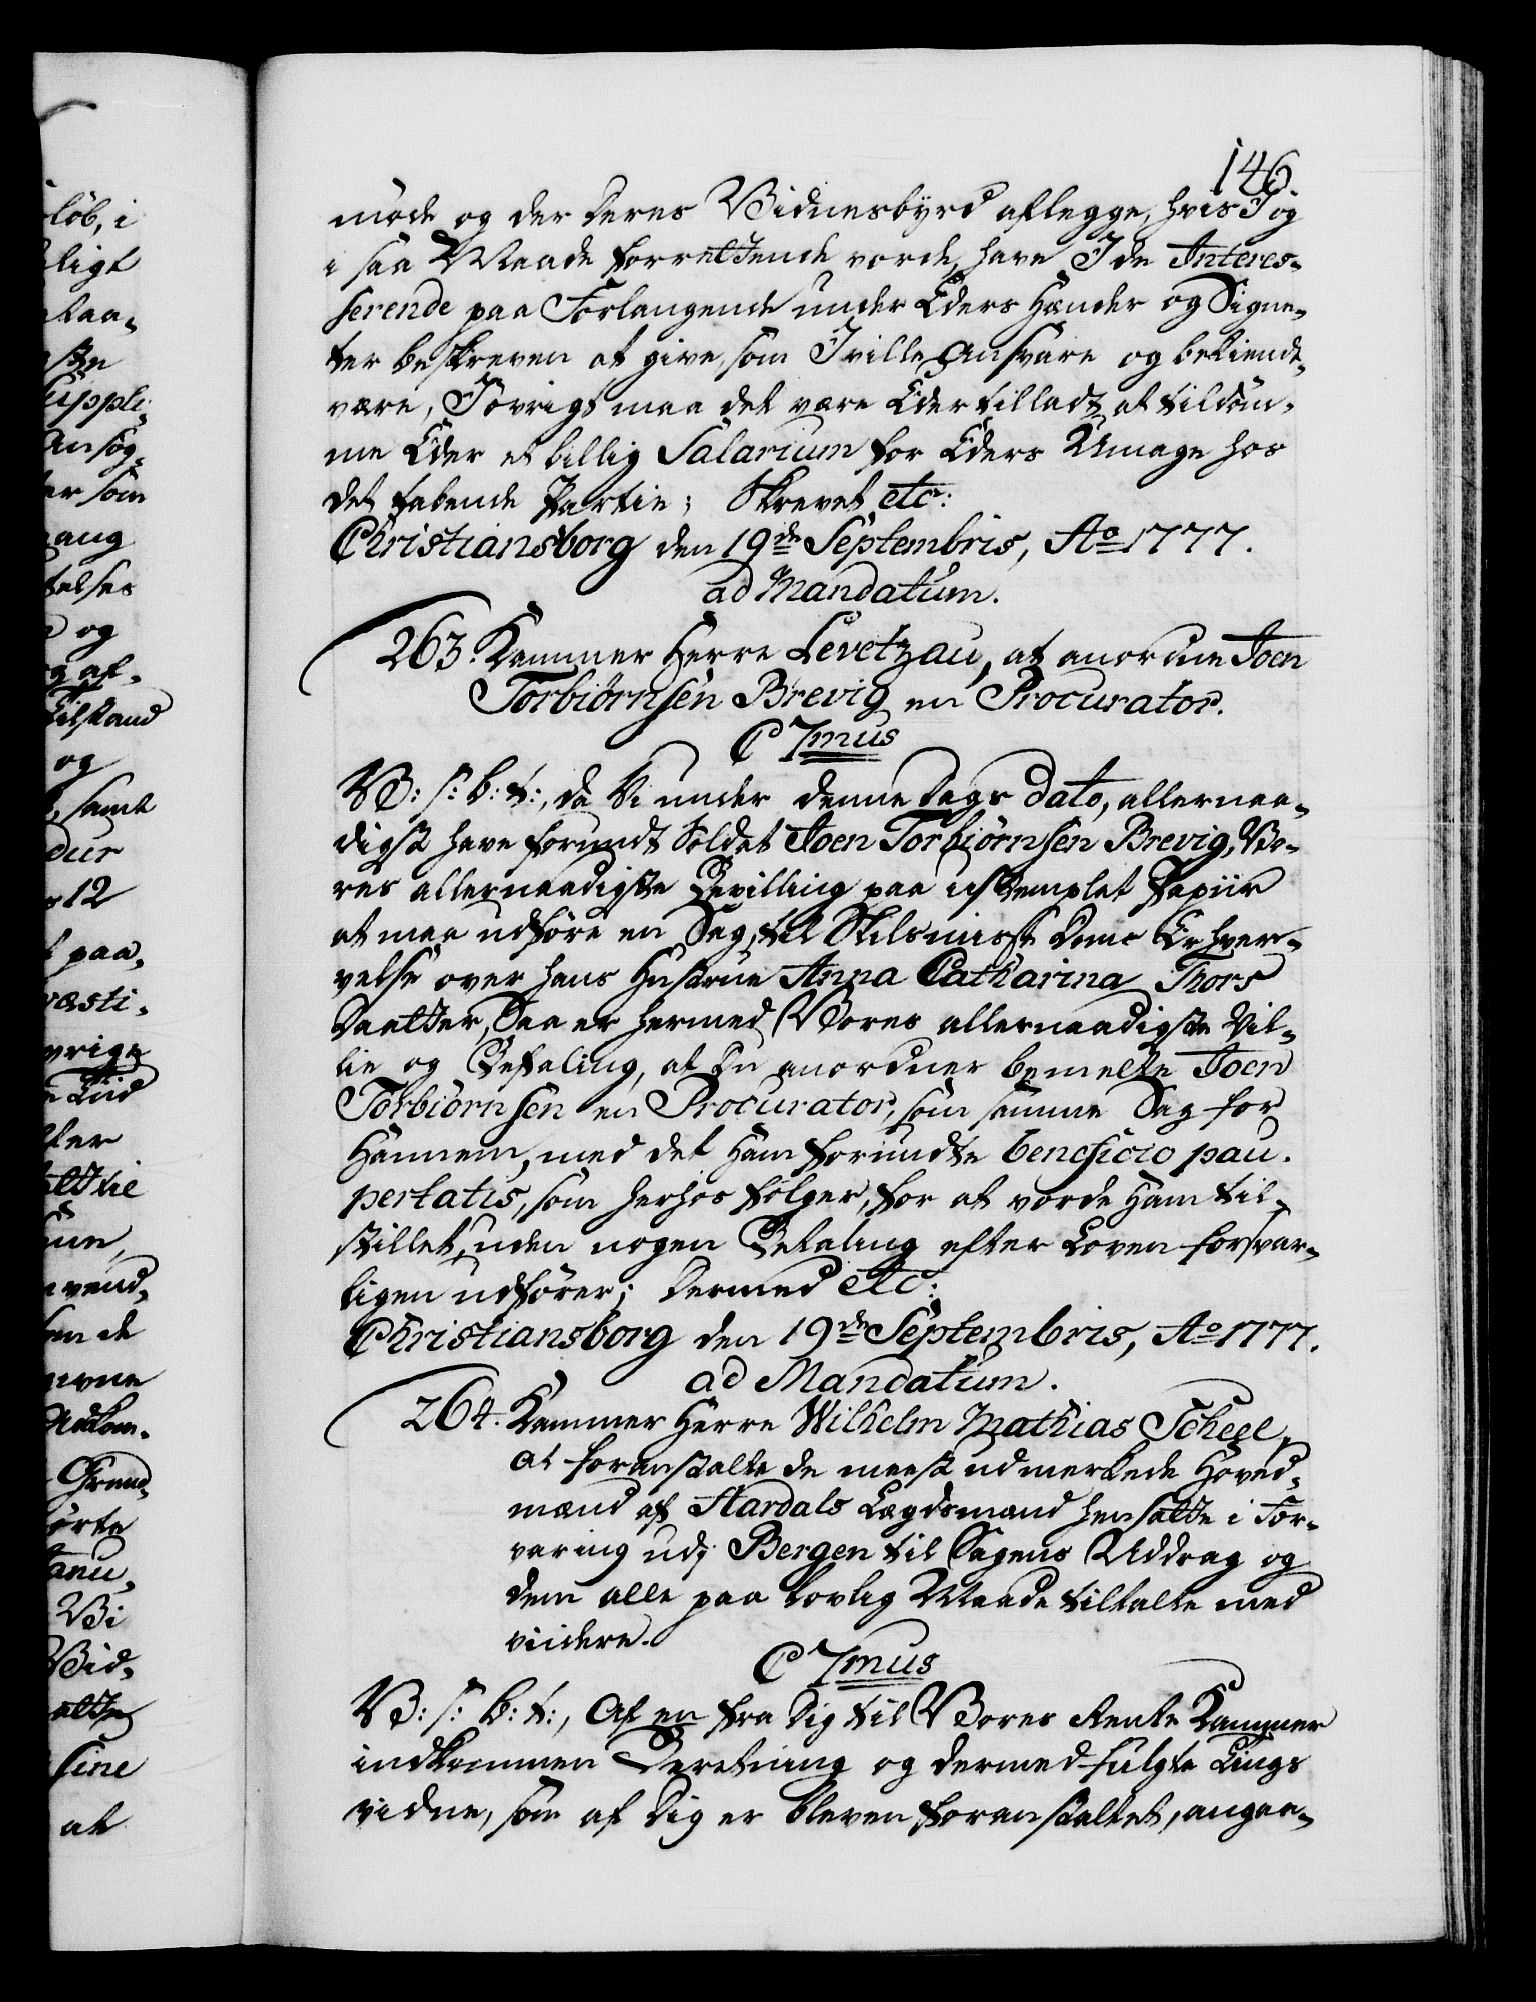 146.
møde og der deres Vidnesbyrd aflegge, hvis I og
i saa Maade forrettende vorde, have I de Interes-
serende paa Forlangende under Eders Hænder og Signe-
ter beskreven at give, som I ville Ansvare og bekiendt
være, Iøvrigt maa det være Eder tilladt at tildøm-
me Eder et billig Salarium for Eders Umage hos
det tabende Partie; Skrevet etc:
Christiansborg den 19de Septembris, Ao 1777.
ad Mandatum.
263. Kammer Herre Levetzau, at anordne Joen
Torbiørnsen Brevig en Procurator.
C 7mus
V: s: b: t:, da Vi under denne Dags Dato, allernaa-
digst have forundt Soldat Joen Torbiørnsen Brevig, Vo-
res allernaadigste Bevilling paa ustemplet Papiir
at maa udføre en Sag, til Skilsmisse Doms Erhver-
velse over hans Hustrue Anna Catharina Thors
Daatter, Saa er hermed Vores allernaadigste Vil-
lie og Befaling, at Du anordner bemelte Joen
Torbiørnsen en Procurator, som samme Sag for
Hannem, med det Ham forundte beneficio pau-
pertatis, som herhos følger, for at vorde Ham til-
stillet, uden nogen Betaling efter Loven forsvar-
ligen udfører; Dermed etc:
Christiansborg den 19de Septembris, Ao 1777.
ad Mandatum.
264. Kammer Herre Wilhelm Mathias Scheel,
at foranstalte de meest udmerkede Hoved-
mænd af Aardals Lægdsmand hensatte i For-
varing udj Bergen til Sagens Uddrag og
dem alle paa lovlig Maade tiltalte med
viidere.
C 7mus
V: s: b: t:, Af en fra Dig til Vores Rente Kammer
indkommen Beretning og dermed fulgte Tings
vidne, som af Dig er bleven foranstaltet, angaa-